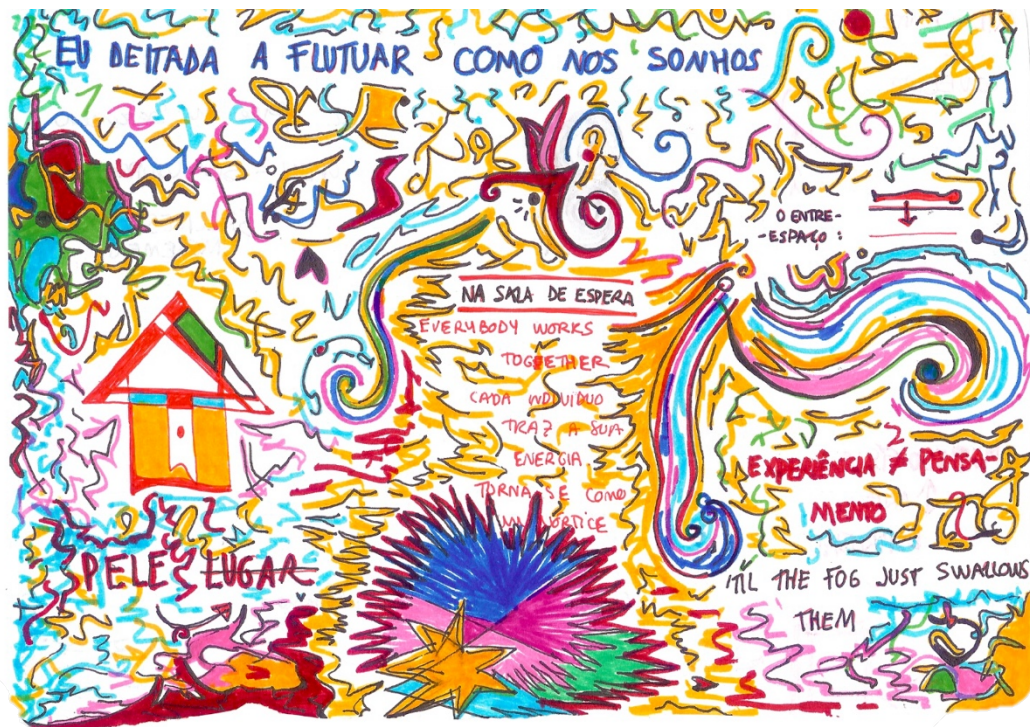 EU DEITADA A FLUTUAR COMO NOS SONHOS
O ENTRE-
-ESPAÇO:
NA SALA DE ESPERA
EVERYBODY WORKS
TOGETHER
CADA INDIVÍDUO
TRAZ A SUA
ENERGIA
TORNA SE COMO
VÓRTICE
EXPERIÊNCIA ≠ PENSA-
MENTO
PELE LUGAR
'TIL THE FOG JUST SWALLOWS
THEM